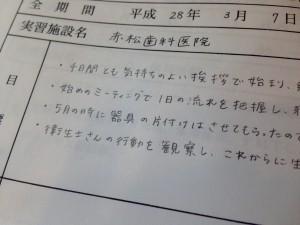 全期間 平成28年3月7日
実習施設名 赤松歯科医院
目
・4日間とも気持ちのよい挨拶で始まり、
・始めのミーティングで1日の流れを把握し、
・5月の時に器具の片付けはさせてもらったので
・衛生士さんの行動を観察し、これからに生